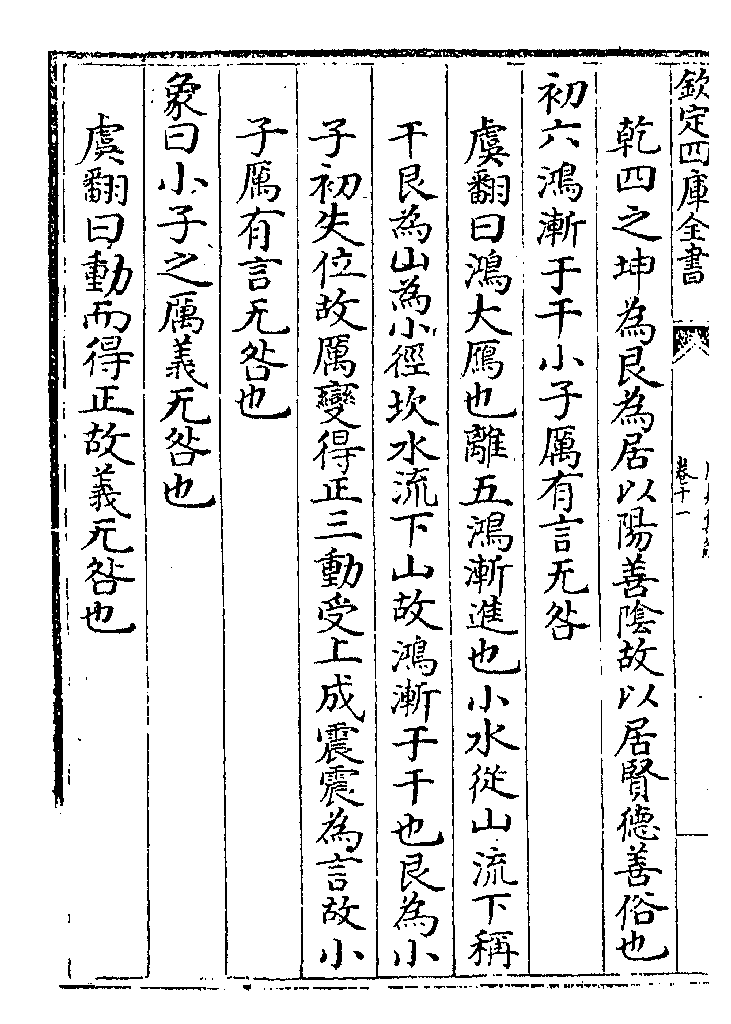 欽定四庫全書
卷十一
乾四之坤為艮為居以陽善隂故以居賢德善俗也
初六鴻漸于干小子厲有言无咎
虞翻曰鴻大鴈也離五鴻漸進也小水從山流下稱
干艮為山為小徑坎水流下山故鴻漸于干也艮為小
子初失位故厲變得正三動受上成震震為言故小
子厲有言无咎也
象曰小子之厲義无咎也
虞翻曰動而得正故義无咎也